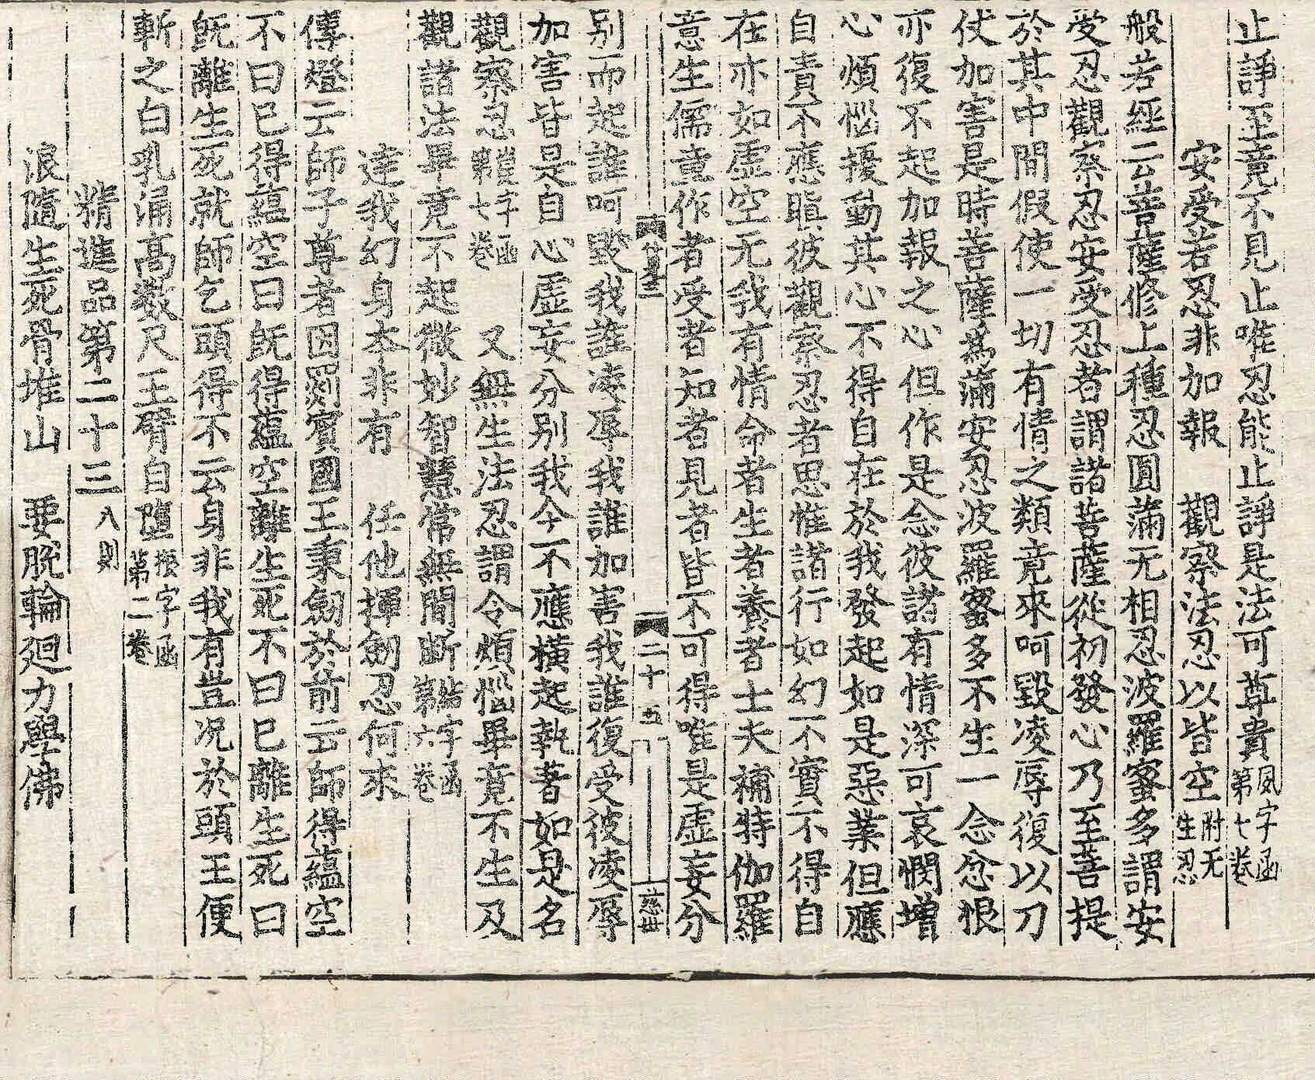 止諍至竟不見止唯忍能止諍是法可尊貴第七卷
安受若忍非加報 觀察法忍以皆空附无生忍
般若經云菩薩修上種忍圓滿无相忍波羅蜜多謂安
受忍觀察忍安受忍者謂諸菩薩從初發心乃至菩提
於其中間假使一切有情之類竟來呵毀凌辱復以刀
仗加害是時菩薩爲滿安忍波羅蜜多不生一念忿恨
亦復不起加報之心但作是念彼諸有情深可哀憫增
心煩惱擾動其心不得自在於我發起如是惡業但應
自責不應瞋彼觀察忍者思惟諸行如幻不實不得自
在亦如虛空无我有情命者生者養者士夫補特伽羅
意生儒童作者受者知者見者皆不可得唯是虛妄分
二十五
别而起誰呵毀我誰凌辱我誰加害我誰復受彼凌辱
加害皆是自心虛妄分别我今不應橫起執著如是名
觀察忍第七卷 又無生法忍謂令煩惱畢竟不生及
觀諸法畢竟不起微妙智慧常無間斷第六卷
達我幻身本非有 任他揮劒忍何求
傳燈云師子尊者因罽賓國王秉劒於前云師得蘊空
不曰已得蘊空曰旣得蘊空離生死不曰已離生死曰
旣離生死就師乞頭得不云身非我有豈況於頭王便
斬之白乳涌高数尺王臂自墮第二卷
精進品第二十三八則
浪隨生死骨堆山 要脫輪廻力學佛